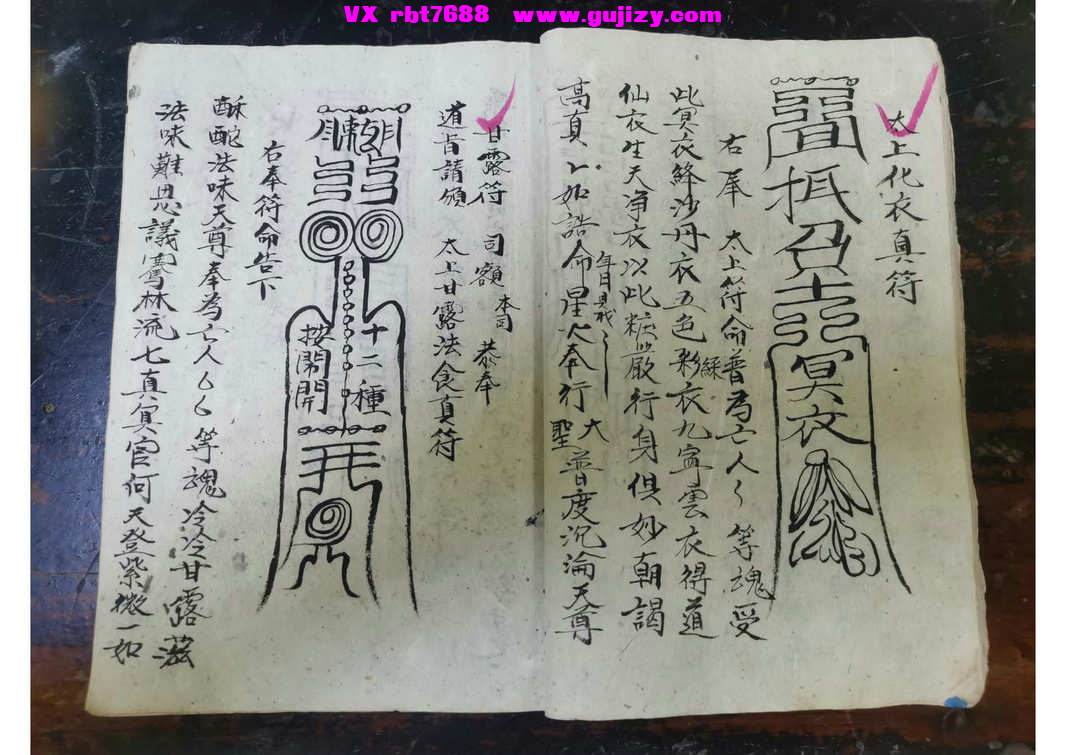 VX rbt7688 www.gujizy.com
太上化衣真符
右奉 太上符命普為亡人々等魂受
此冥衣絳沙丹衣五色彩衣九雲衣得道
綵
仙衣生天净衣以此糚嚴行身俱妙朝謁
高真 如誥命星火奉行 大聖普度沉淪天尊
冥衣
甘露符 司額 本司 恭奉
道旨請頒 太上甘露法食真符
十二種
按開開
右奉符命告下
酥酡法味天尊奉為亡人等魂冷冷甘露滋
法味難思議騫林流七真冥官何天登紫微一如